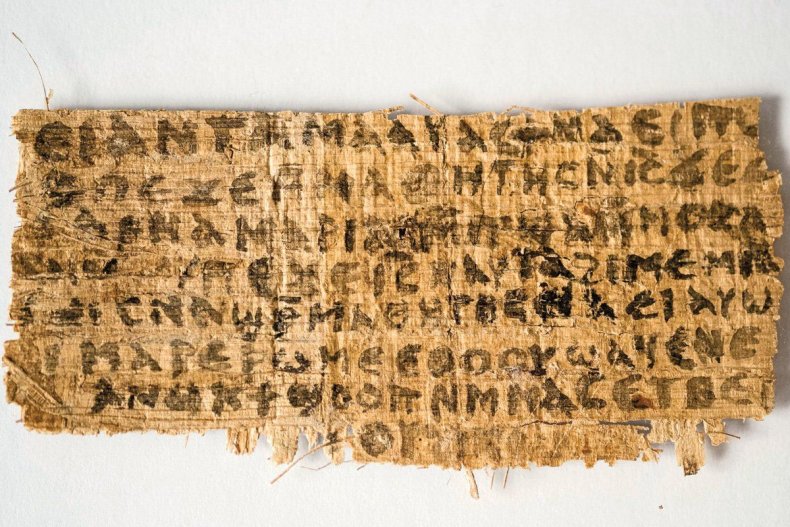 ⲉⲓ ⲁⲛ ⲧⲁⲙⲁⲁⲩ ⲁⲥϯ ⲛⲁⲉⲓ ⲡⲱ
ⲡⲉϫⲉ ⲙⲙⲁⲑⲏⲧⲏⲥ ⲛ̄ⲓ̄ⲥ̄ ϫⲉ ⲥ
ⲁⲣⲛⲁ ⲙⲁⲣⲓⲁⲙ ⲙⲡϣⲁ ⲙⲙⲟⲥ ⲁ
ⲡⲉϫⲉ ⲓ̄ⲥ̄ ⲛⲁⲩ ⲧⲁϩⲓⲙⲉ ⲙⲛ
ⲥⲛⲁϣⲣ̄ⲙⲁⲑⲏⲧⲏⲥ ⲛⲁⲉⲓ ⲁⲩⲱ
ⲓ ⲙⲁⲣⲉⲣⲱⲙⲉ ⲉⲑⲟⲟⲩ ϣⲁϥⲉ ⲛⲉ
ⲁⲛⲟⲕ ϯϣⲟⲟⲡ ⲛⲙⲙⲁⲥ ⲉⲧⲃⲉ